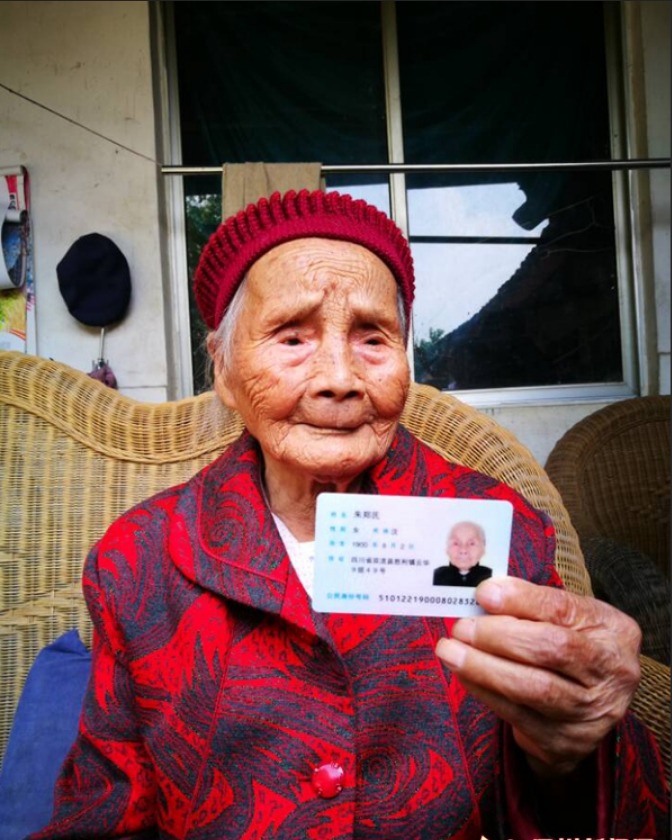 姓名 朱郑氏
性别 女 民族 汉
出生 1900 年 8 月 2 日
住址 四川省双流县胜利镇云华
49号
公民身份号码 51012219000802832